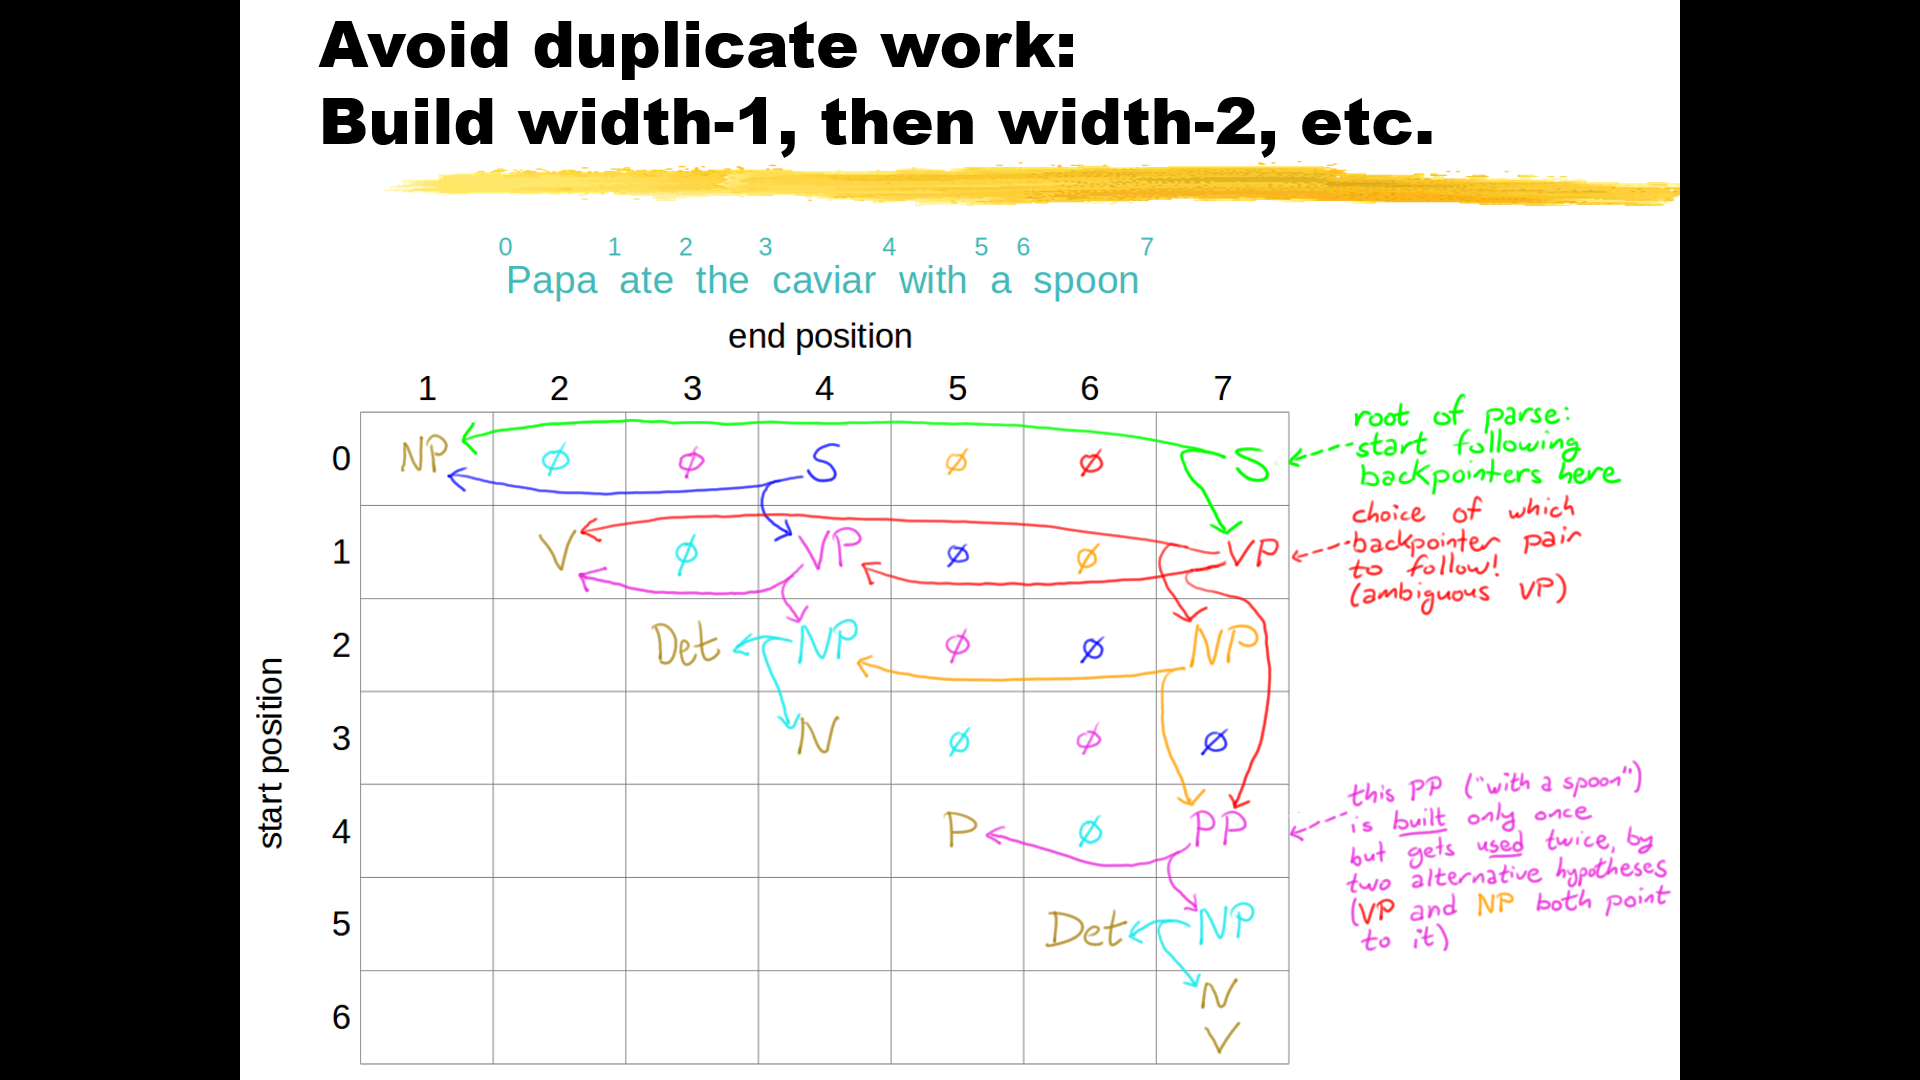 Avoid duplicate work:
Build width-1, then width-2, etc.
0 1 2 3 4 5 6 7
Papa ate the caviar with a spoon
end position
1 2 3 4 5 6 7
start position
0 NP ∅ ∅ S ∅ ∅ S
1 V ∅ VP ∅ ∅ VP
2 Det NP ∅ ∅ NP
3 N ∅ ∅ ∅
4 P ∅ PP
5 Det NP
6 N
V
root of parse:
start following
backpointers here
choice of which
backpointer pair
to follow!
(ambiguous VP)
this PP ("with a spoon")
is built only once
but gets used twice, by
two alternative hypotheses
(VP and NP both point
to it)